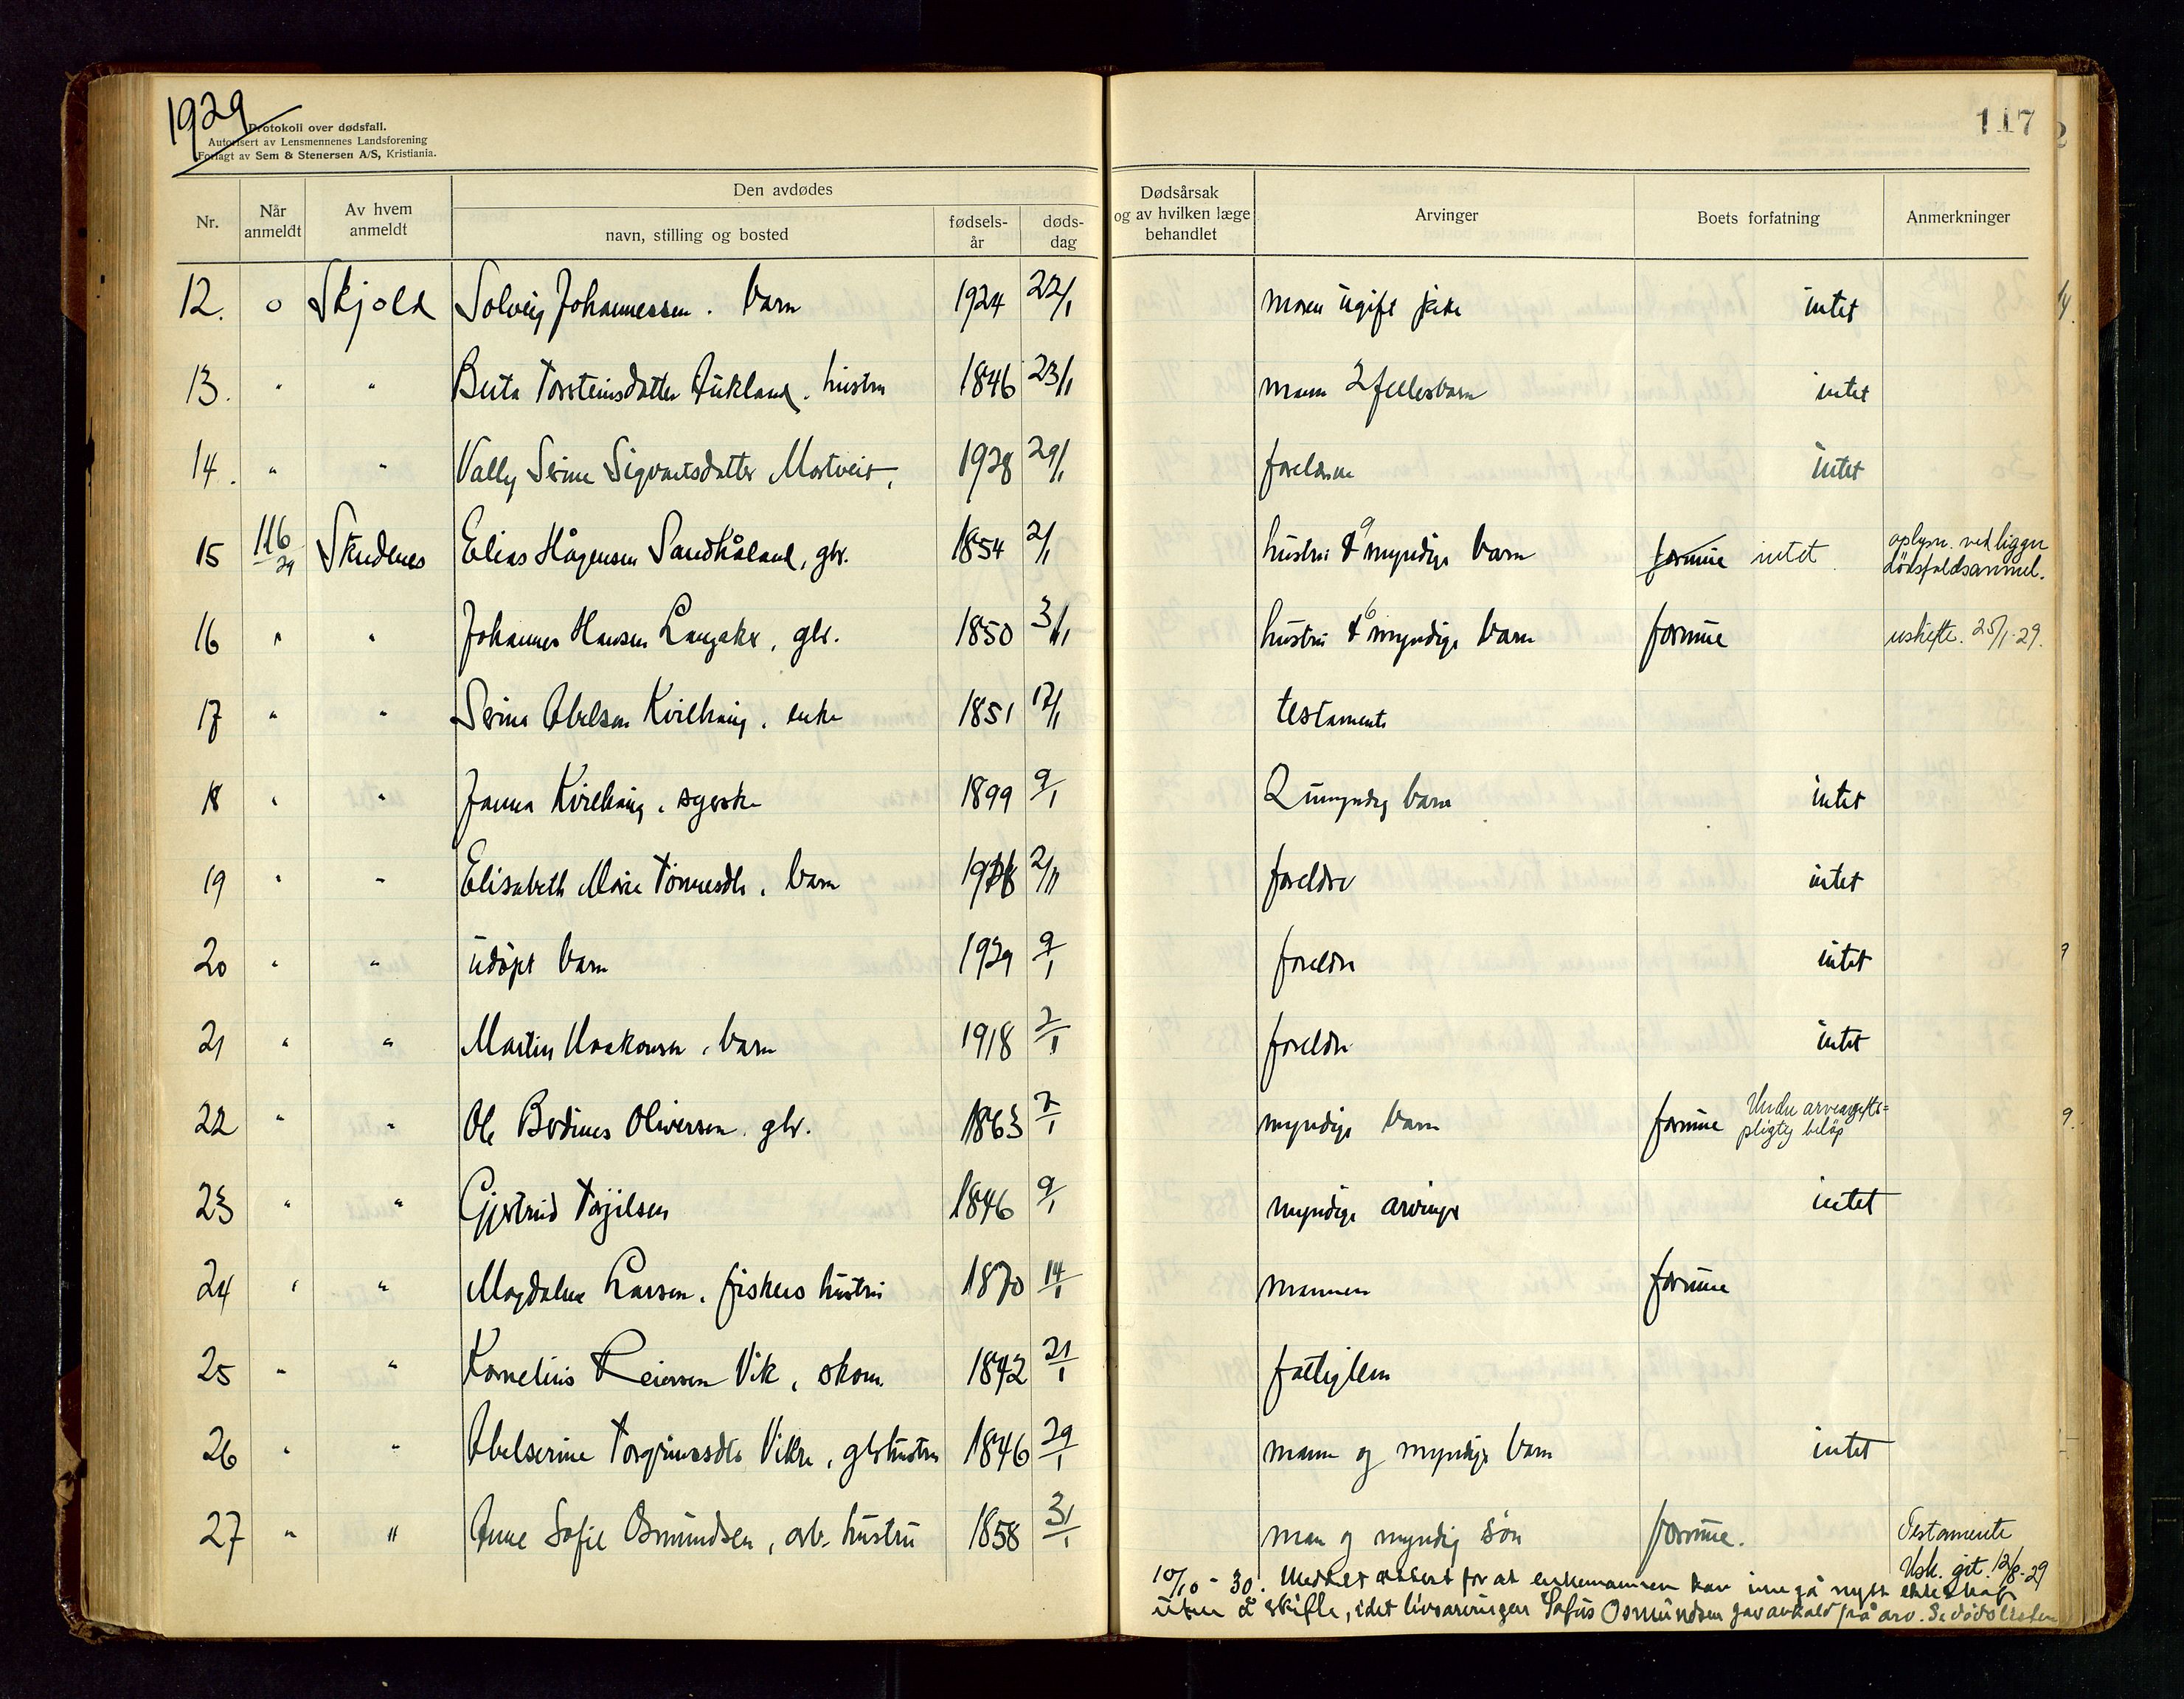 1929
Protokoll over dødsfall.
Autorisert av Lensmennenes Landsforening
Forlagt av Sem & Stenersen A/S, Kristiania.
117
Nr. Når anmeldt Av hvem anmeldt Den avdødes navn, stilling og bosted fødsels-år døds-dag Dødsårsak og av hvilken læge behandlet Arvinger Boets forfatning Anmerkninger
12. o Skjold Solveig Johannessen. barn 1924 22/1 moren ugift pike intet
13. " " Berta Torsteinsdatter Aukland. hustru 1846 23/1 mann 2 fellesbarn intet
14. " " Vally Serine Sigvartsdatter Mortveit, 1928 29/1 foreldrene intet
15 116/29 Skudenes Elias Hågensen Sandhåland, gbr. 1854 2/1 hustru & 9 myndige barn formue intet. oplysn. ved liggr dödsfaldsanmel.
16 " " Johannes Hansen Langaker, gbr. 1850 3/1 hustru & 6 myndige barn formue uskifte. 25/1-29.
17 " " Serina Abelsen Kvilhaug. enke 1851 17/1 testamente
18 " " Janna Kvilhaug. syerske 1899 9/1 2 umyndig barn intet
19 " " Elisabeth Marie Tönnesdtr. barn 1928 2/11 foreldre intet
20 " " udöpt barn 1929 9/1 foreldre intet
21 " " Martin Haakonsen. barn 1918 2/1 foreldre intet
22 " " Ole Bodinus Oliversen. gbr. 1863 7/1 myndige barn formue Under arveavgifts= pligtig belöp
23 " " Gjertrud Torjilsen 1846 9/1 myndige arvinger intet
24 " " Magdalene Larsen. fiskers hustru 1870 14/1 mannen formue
25 " " Kornelius Reiersen Vik, skom. 1842 21/1 fattiglem
26 " " Abelserine Torgrimsdtr Vikre, gbr hustru 1846 29/1 mann og myndige barn intet
27 " " Anne Sofie Osmundsen, arb. hustru 1858 31/1 man og myndig sön formue. Testamente
Usk. git. 12/8-29
10/10-30. Meddelt attest for at enkemannen kan inngå nytt ekteskap
uten å skifte, idet livsarvingen Sofus Osmundsen gav avkald på arv. Se dödslisten